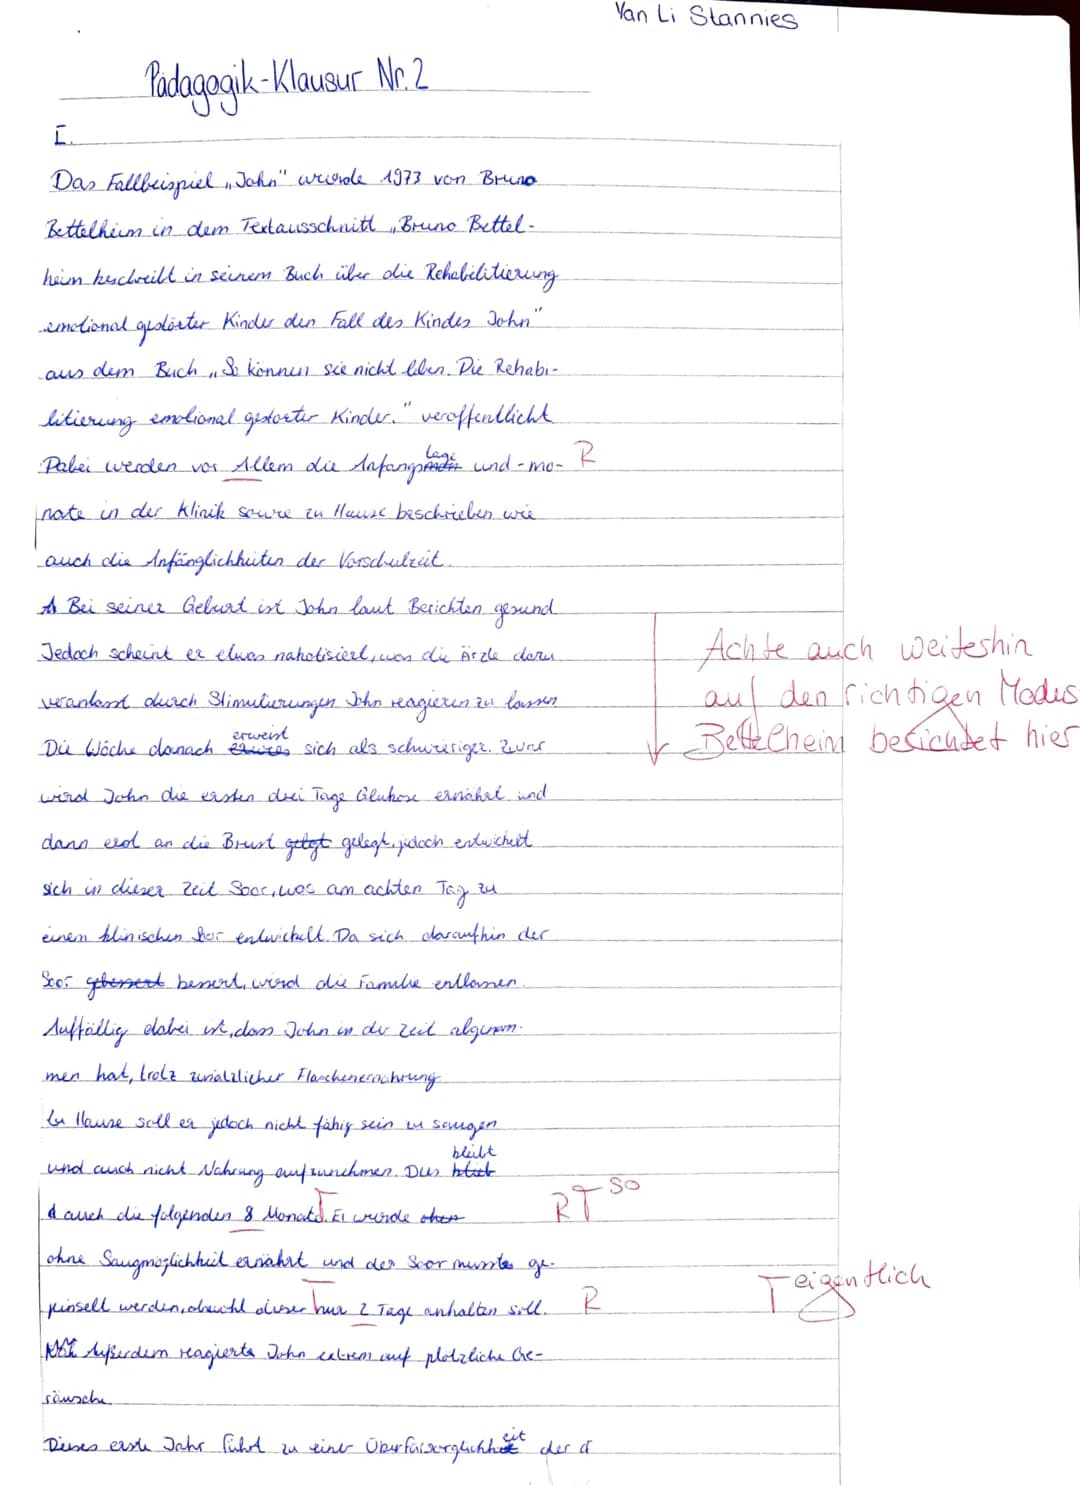 Yan Li Stannies
Pädagogik-Klausur Nr. 2
I.
Das Fallbeispiel „John" wurde 1973 von Bruno
Bettelheim in dem Textausschnitt „Bruno Bettel-
heim beschreibt in seinem Buch über die Rehabilitierung
emotional gestörter Kinder den Fall des Kindes John"
aus dem Buch „So können sie nicht leben. Die Rehabi-
litierung emotional gestörter Kinder." veröffentlicht
Dabei werden vor Allem die Anfangstage und -mo- R
nate in der Klinik sowie zu Hause beschrieben wie
auch die Anfänglichkeiten der Vorschulzeit.
Bei seiner Geburt ist John laut Berichten gesund
Jedoch scheint er etwas nakotisiert, was die Ärzte dazu
Achte auch weiterhin
veranlasst durch Stimulierungen John reagieren zu lassen
auf den richtigen Modus
Die Woche danach erweist sich als schwieriger. Zwar
Bettelheim berichtet hier
wird John die ersten drei Tage Glukose ernährt und
dann erst an die Brust gelegt, jedoch entwickelt
sich in dieser Zeit Soor, was am achten Tag zu
einem klinischen Soor entwickelt. Da sich daraufhin der
Soor bessert, wird die Familie entlassen.
Auffällig dabei ist, dass John in der Zeit abgenom-
men hat, trotz zusätzlicher Flaschenernährung
Zu Hause soll er jedoch nicht fähig sein zu saugen
und auch nicht Nahrung aufzunehmen. Dies bleibt
auch die folgenden 8 Monate. Er wurde RT so
ohne Saugmöglichkeit ernährt und der Soor musste ge-
pinselt werden, obwohl dieser nur 2 Tage anhalten soll. R T eigentlich
Außerdem reagierte John extrem auf plötzliche Ge-
räusche.
Dieses erste Jahr führt zu einer Überfürsorglichkeit der